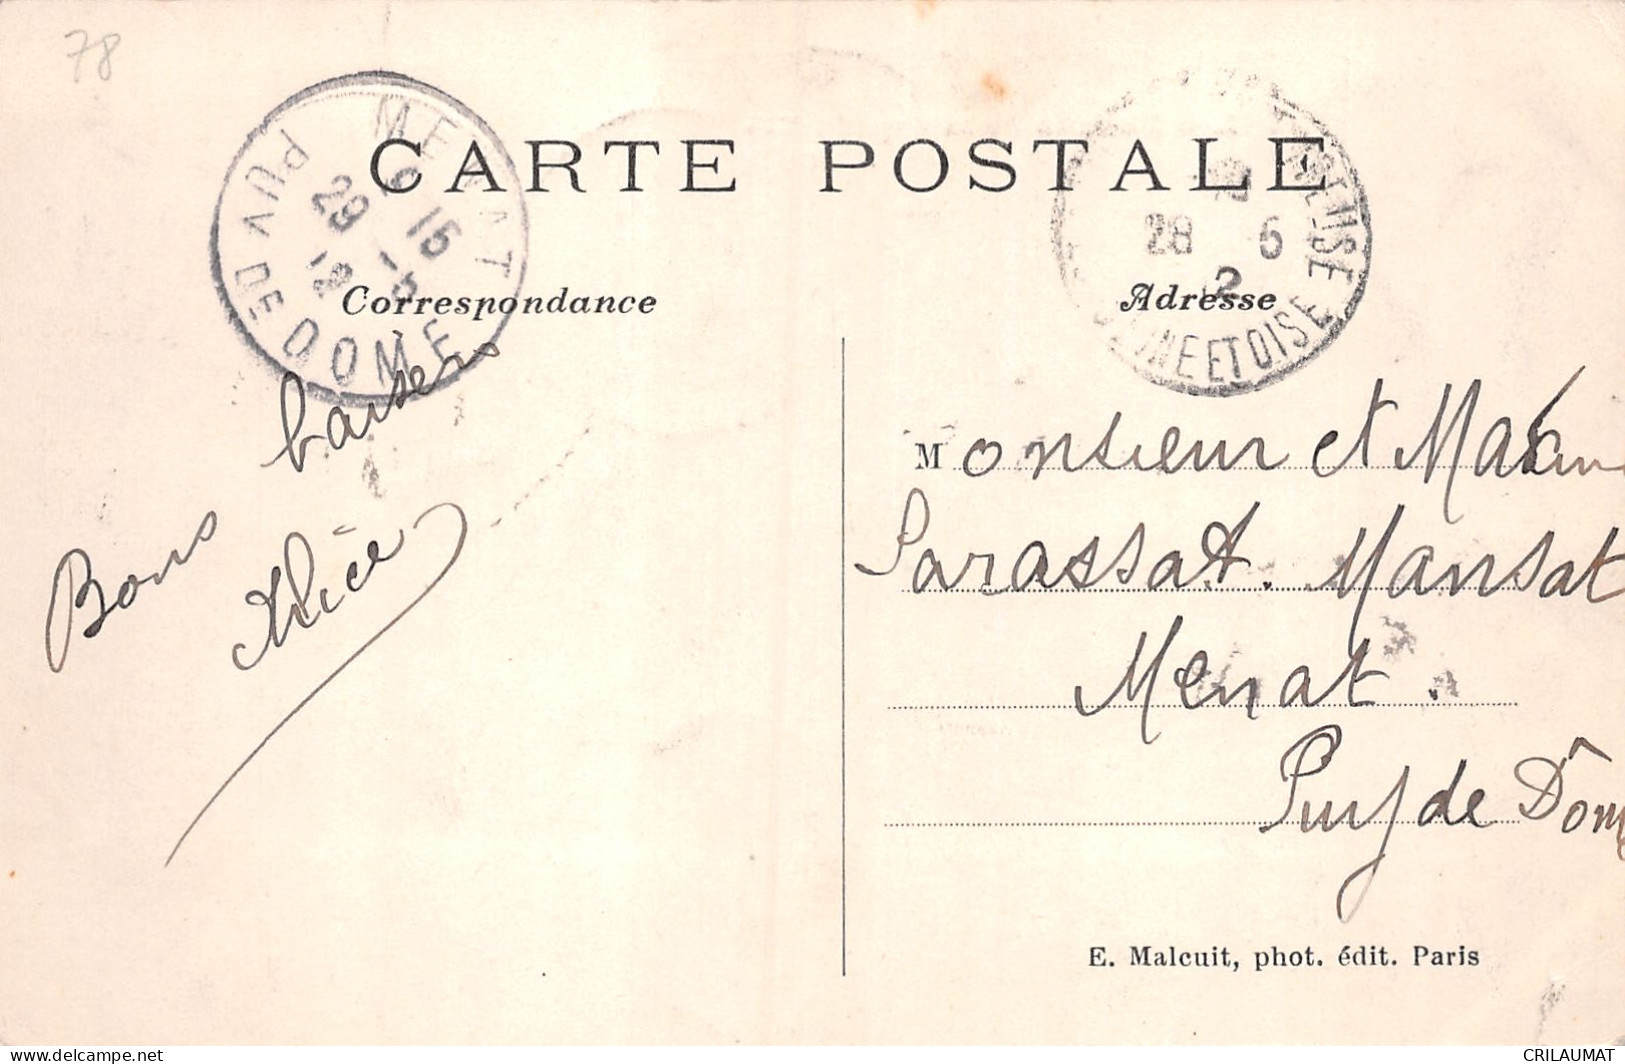 78
MENAT
PUY DE DOME
6 15
29 - 5
12
CARTE POSTALE
28 5
12
SEINE ET OISE
Correspondance
Adresse
Bons baisers
Alice
Monsieur et
Parassat. Mansat
Menat.
Puy de Dôm
E. Malcuit, phot. édit. Paris
www.delcampe.net
CRILAUMAT